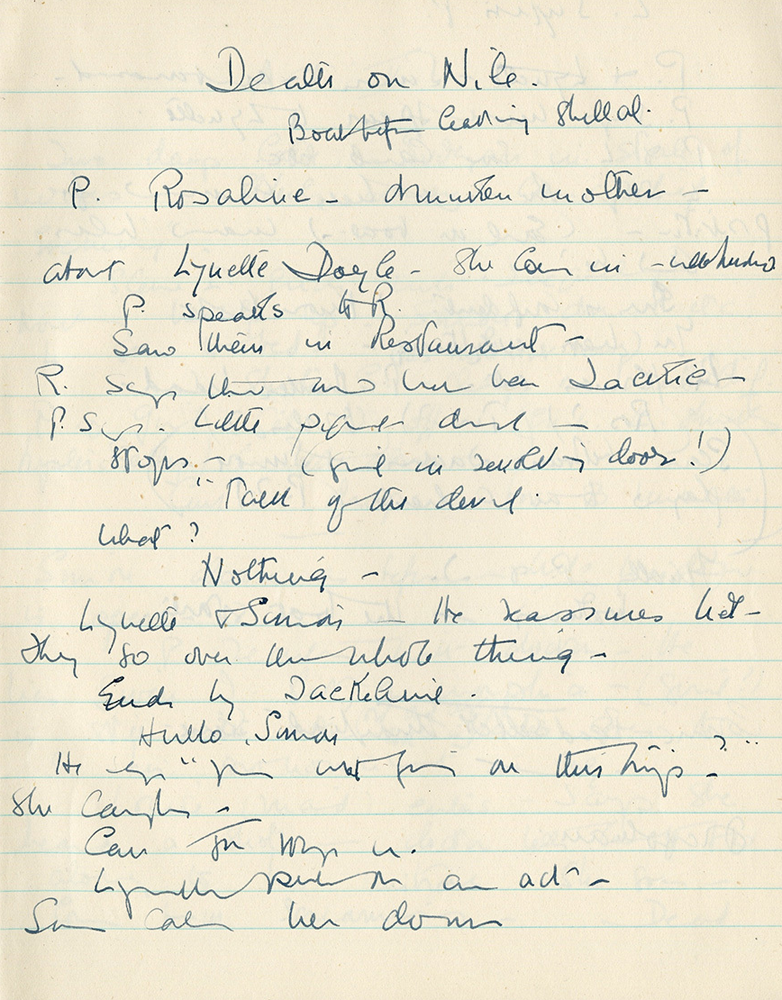 Death on Nile.
Boat before leaving Shellal.
P. Rosalie - drunken mother -
about Lynette Doyle - She can in -
P. speaks to R.
Saw them in Restaurant -
R. says then her Jackie -
P. Says. little
stops. - (girl in revolving door!)
"Talk of the devil.
What?
Nothing -
Lynette & Simon - He reassures her -
They go over the whole thing -
Ends by Jackeline.
Hullo, Simon
He "you not on this trip?"
She laughs -
Can you in.
Lynette an act -
Simon calm her down